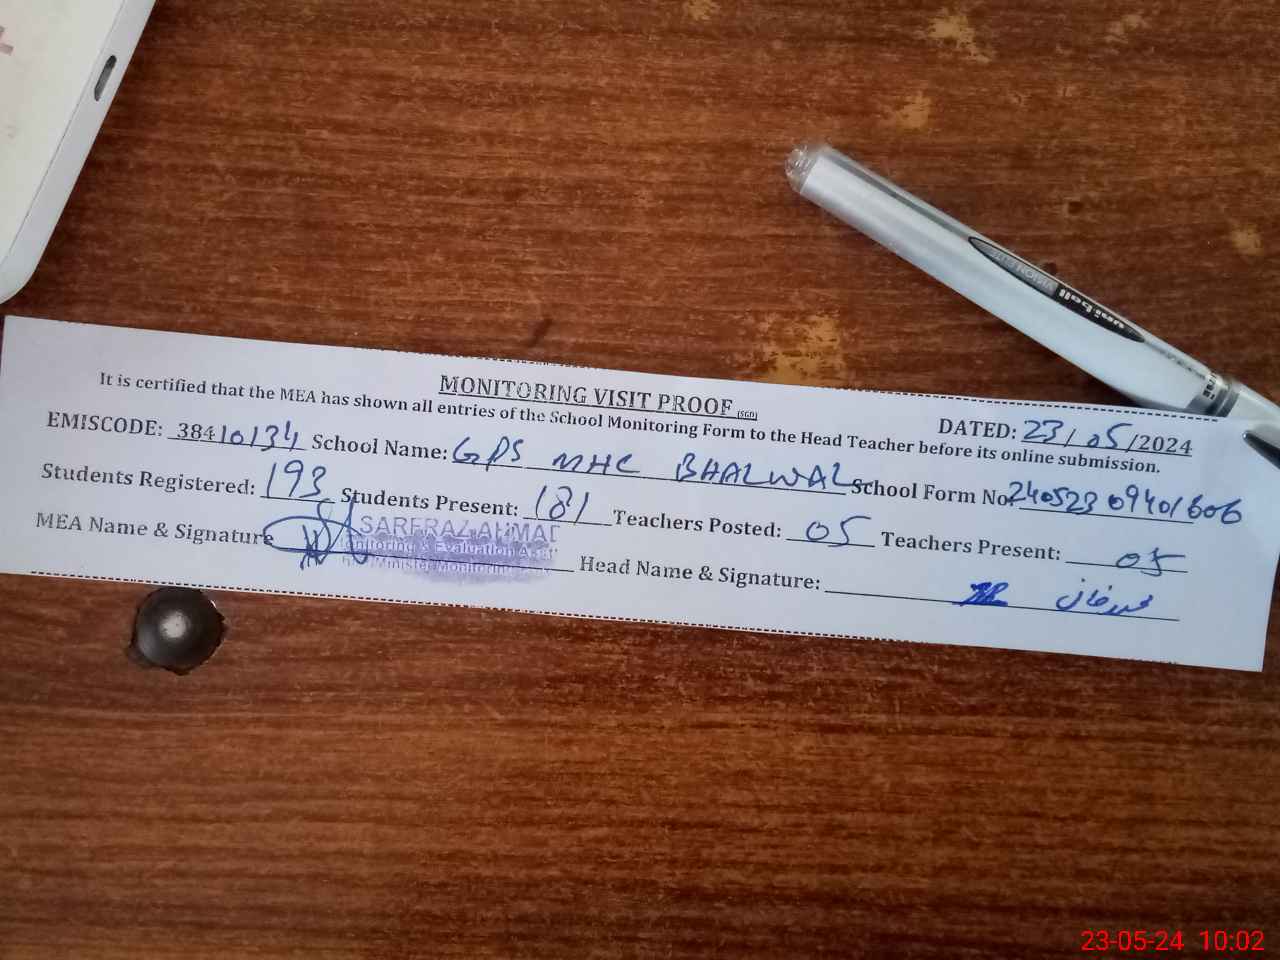 MONITORING VISIT PROOF (SGD)
DATED: 23/05/2024
It is certified that the MEA has shown all entries of the School Monitoring Form to the Head Teacher before its online submission.
EMISCODE: 38410134 School Name: GPS MHC BHALWAL School Form No. 24052309401606
Students Registered: 193 Students Present: 181 Teachers Posted: 05 Teachers Present: 05
MEA Name & Signature SARFRAZ AHMAD Head Name & Signature:
Monitoring & Evaluation
Minister Monitoring
uni-ball
VISION ELITE
23-05-24 10:02